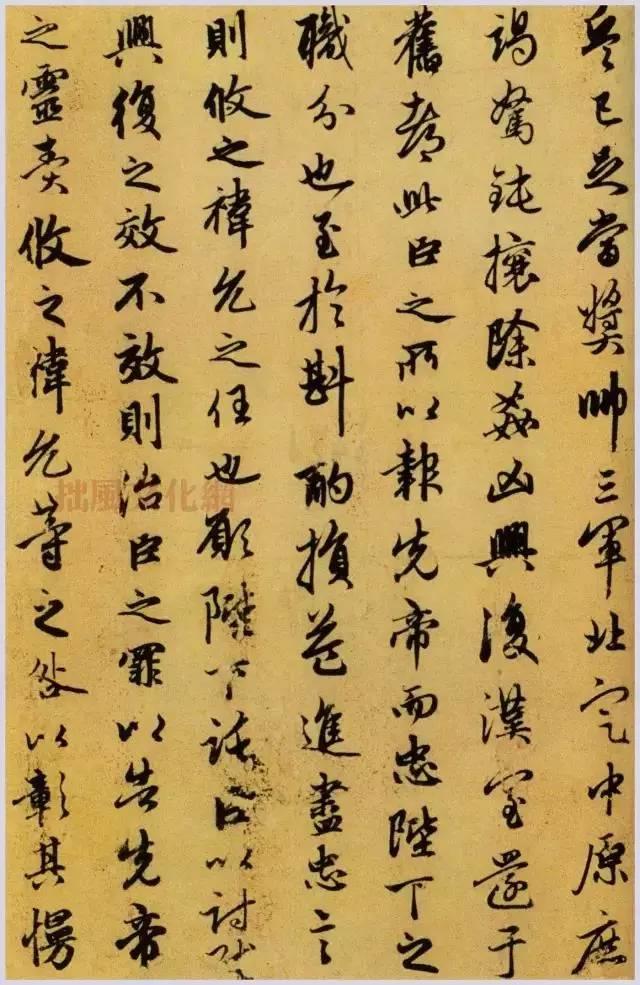 兵已足當獎帥三軍北定中原庶
竭駑鈍攘除姦凶興復漢室還于
舊都此臣之所以報先帝而忠陛下之
職分也至於斟酌損益進盡忠言
則攸之褘允之任也願陛下託臣以討賊
興復之效不效則治臣之罪以告先帝
之靈責攸之褘允等之咎以彰其慢
拙風文化網